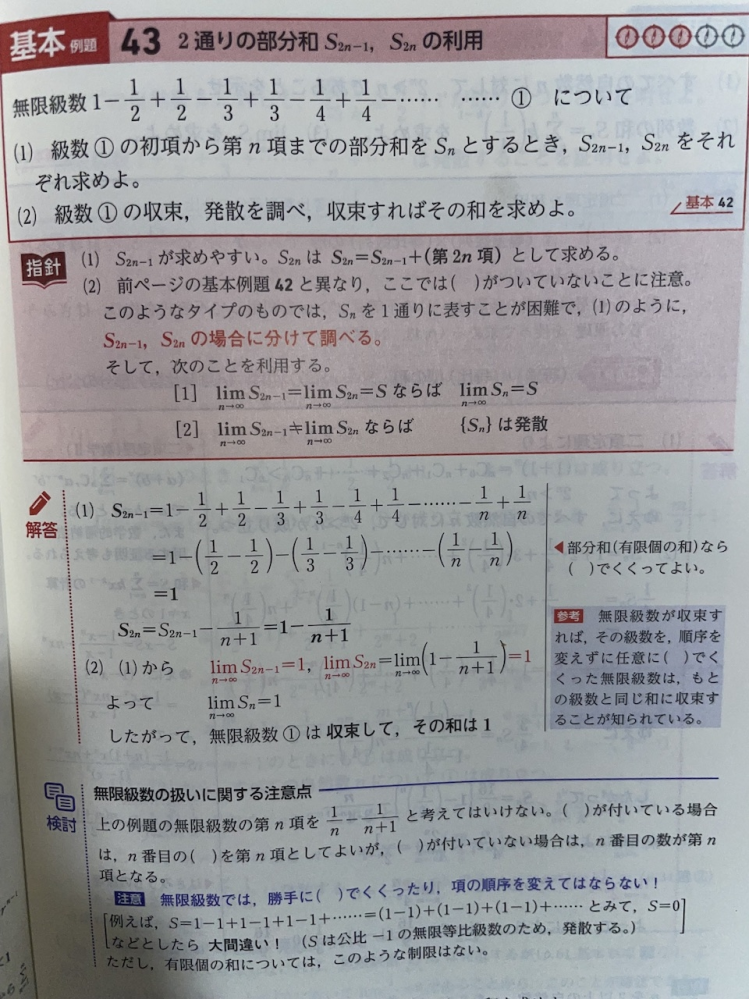 基本 例題 43 2通りの部分和 S₂ₙ₋₁, S₂ₙ の利用
無限級数 1−1/2+1/2−1/3+1/3−1/4+1/4−…… …… ① について
(1) 級数①の初項から第 n 項までの部分和を Sₙ とするとき，S₂ₙ₋₁, S₂ₙ をそれ
ぞれ求めよ。
(2) 級数①の収束，発散を調べ，収束すればその和を求めよ。
基本 42
指針
(1) S₂ₙ₋₁ が求めやすい。S₂ₙ は S₂ₙ=S₂ₙ₋₁+(第 2n 項) として求める。
(2) 前ページの基本例題 42 と異なり，ここでは( )がついていないことに注意。
このようなタイプのものでは，Sₙ を1通りに表すことが困難で，(1)のように，
S₂ₙ₋₁, S₂ₙ の場合に分けて調べる。
そして，次のことを利用する。
[1] lim_{n→∞} S₂ₙ₋₁=lim_{n→∞} S₂ₙ=S ならば lim_{n→∞} Sₙ=S
[2] lim_{n→∞} S₂ₙ₋₁≠lim_{n→∞} S₂ₙ ならば {Sₙ} は発散
解答
(1) S₂ₙ₋₁=1−1/2+1/2−1/3+1/3−1/4+1/4−……−1/n+1/n
=1−(1/2−1/2)−(1/3−1/3)−……−(1/n−1/n)
=1
S₂ₙ=S₂ₙ₋₁−1/(n+1)=1−1/(n+1)
(2) (1)から lim_{n→∞} S₂ₙ₋₁=1, lim_{n→∞} S₂ₙ=lim_{n→∞}(1−1/(n+1))=1
よって lim_{n→∞} Sₙ=1
したがって，無限級数①は 収束して，その和は 1
◀部分和(有限個の和)なら
( )でくくってよい。
参考 無限級数が収束す
れば，その級数を，順序を
変えずに任意に( )でく
くった無限級数は，もと
の級数と同じ和に収束す
ることが知られている。
検討
無限級数の扱いに関する注意点
上の例題の無限級数の第 n 項を 1/n−1/(n+1) と考えてはいけない。( )が付いている場合
は，n 番目の( )を第 n 項としてよいが，( )が付いていない場合は，n 番目の数が第 n
項となる。
注意 無限級数では，勝手に( )でくくったり，項の順序を変えてはならない！
[例えば，S=1−1+1−1+1−1+……=(1−1)+(1−1)+(1−1)+…… とみて，S=0
などとしたら 大間違い！ (S は公比 −1 の無限等比級数のため，発散する。)]
ただし，有限個の和については，このような制限はない。